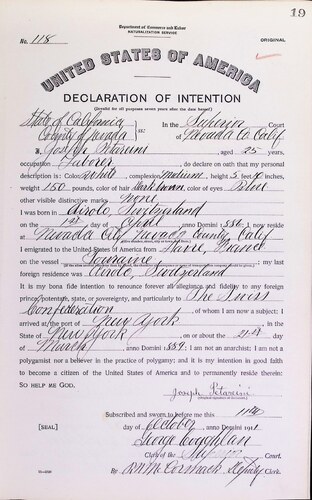 19
Department of Commerce and Labor
NATURALIZATION SERVICE
No. 118
ORIGINAL
UNITED STATES OF AMERICA
DECLARATION OF INTENTION
(Invalid for all purposes seven years after the date hereof)
State of California, In the Superior Court
County of Nevada ss: of Nevada Co. Calif
I, Joseph, aged 25 years,
occupation Laborer, do declare on oath that my personal
description is: Color White, complexion Medium, height 5 feet inches,
weight 150 pounds, color of hair Dark brown, color of eyes Blue
other visible distinctive marks none
I was born in Airolo, Switzerland
on the 1st day of April, anno Domini 1886; I now reside
at Nevada City, Nevada County, Calif
I emigrated to the United States of America from Havre, France
on the vessel Touraine; my last
foreign residence was Airolo, Switzerland
It is my bona fide intention to renounce forever all allegiance and fidelity to any foreign
prince, potentate, state, or sovereignty, and particularly to The Swiss
Confederation, of whom I am now a subject; I
arrived at the port of New York, in the
State of New York, on or about the day
of March, anno Domini 1; I am not an anarchist; I am not a
polygamist nor a believer in the practice of polygamy; and it is my intention in good faith
to become a citizen of the United States of America and to permanently reside therein:
SO HELP ME GOD.
Joseph
Subscribed and sworn to before me this 11th
[SEAL] day of October, anno Domini 191
George Coughlan
Clerk of the Superior Court.
By R.N. McCormack Deputy Clerk.